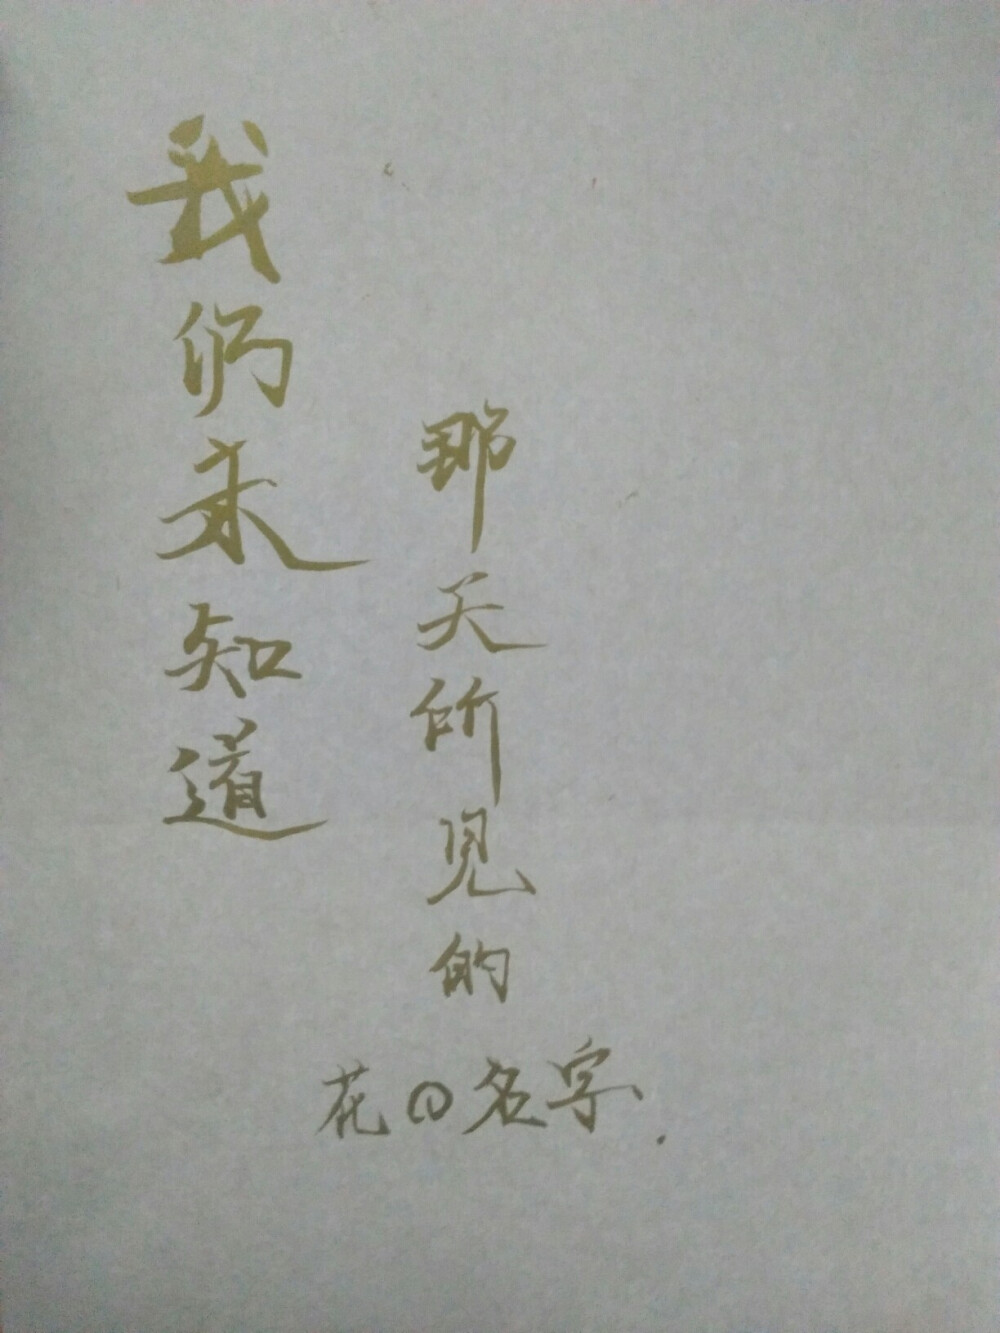 我们未知道
那天所见的
花の名字.